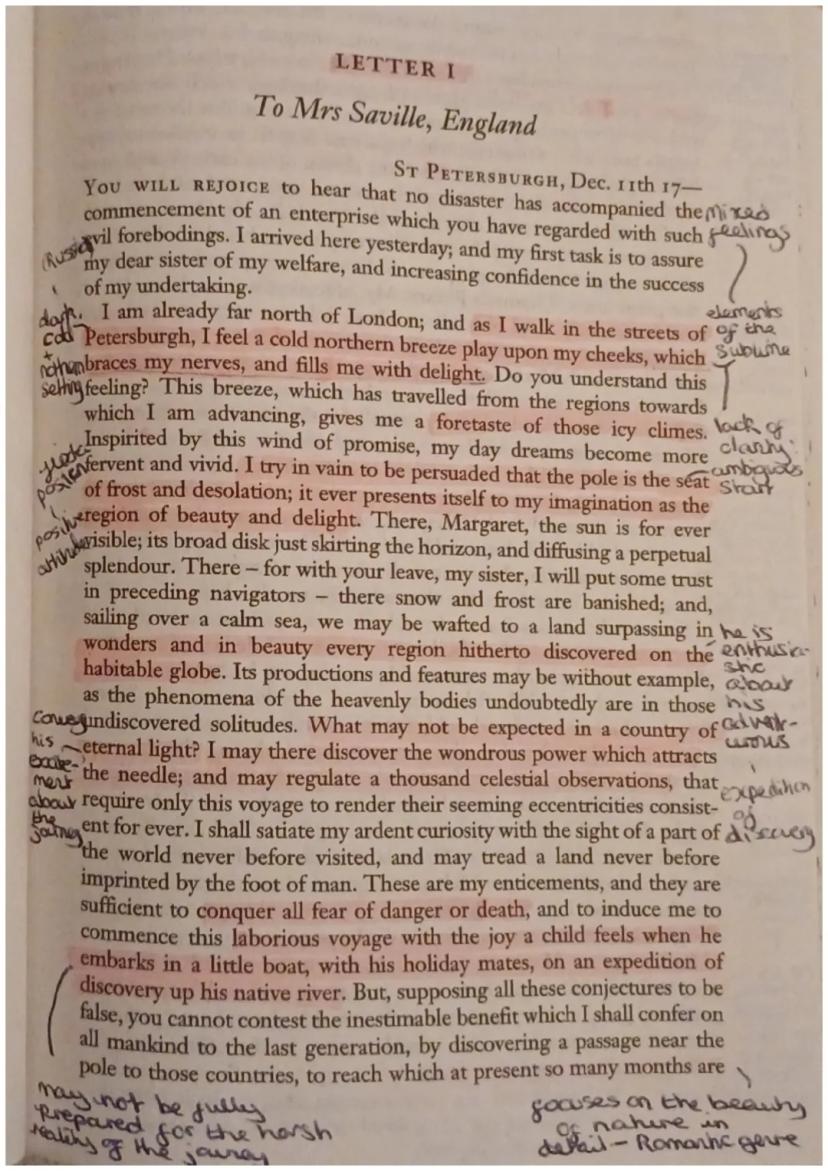 LETTER I
To Mrs Saville, England
ST PETERSBURGH, Dec. 11th 17—
YOU WILL REJOICE to hear that no disaster has accompanied the
commencement of an enterprise which you have regarded with such
evil forebodings. I arrived here yesterday; and my first task is to assure
my dear sister of my welfare, and increasing confidence in the success
of my undertaking.
I am already far north of London; and as I walk in the streets of
Petersburgh, I feel a cold northern breeze play upon my cheeks, which
braces my nerves, and fills me with delight. Do you understand this
feeling? This breeze, which has travelled from the regions towards
which I am advancing, gives me a foretaste of those icy climes.
Inspirited by this wind of promise, my day dreams become more
fervent and vivid. I try in vain to be persuaded that the pole is the seat
of frost and desolation; it ever presents itself to my imagination as the
region of beauty and delight. There, Margaret, the sun is for ever
visible; its broad disk just skirting the horizon, and diffusing a perpetual
splendour. There – for with your leave, my sister, I will put some trust
in preceding navigators – there snow and frost are banished; and,
sailing over a calm sea, we may be wafted to a land surpassing in
wonders and in beauty every region hitherto discovered on the
habitable globe. Its productions and features may be without example,
as the phenomena of the heavenly bodies undoubtedly are in those
undiscovered solitudes. What may not be expected in a country of
eternal light? I may there discover the wondrous power which attracts
the needle; and may regulate a thousand celestial observations, that
require only this voyage to render their seeming eccentricities consist-
ent for ever. I shall satiate my ardent curiosity with the sight of a part of
the world never before visited, and may tread a land never before
imprinted by the foot of man. These are my enticements, and they are
sufficient to conquer all fear of danger or death, and to induce me to
commence this laborious voyage with the joy a child feels when he
embarks in a little boat, with his holiday mates, on an expedition of
discovery up his native river. But, supposing all these conjectures to be
false, you cannot contest the inestimable benefit which I shall confer on
all mankind to the last generation, by discovering a passage near the
pole to those countries, to reach which at present so many months are
mixed
feelings
elements
of the
sublime
lack of
clarity
ambiguous
start
he is
enthusia-
stic
about
his
adven-
turous
expedition
of
discovery
dark,
cold
+
northern
setting
positive
attitude
conveys
his
excite-
ment
about
the
journey
may not be fully
prepared for the harsh
reality of the journey
focuses on the beauty
of nature in
detail – Romantic genre